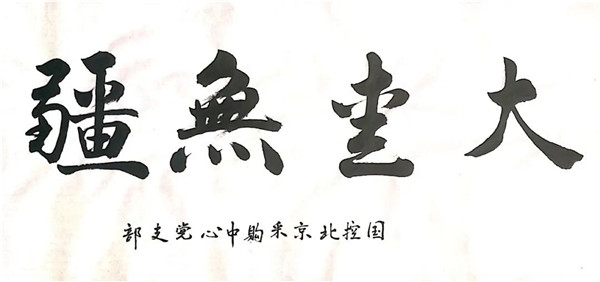 大愛無疆
国控北京采购中心党支部